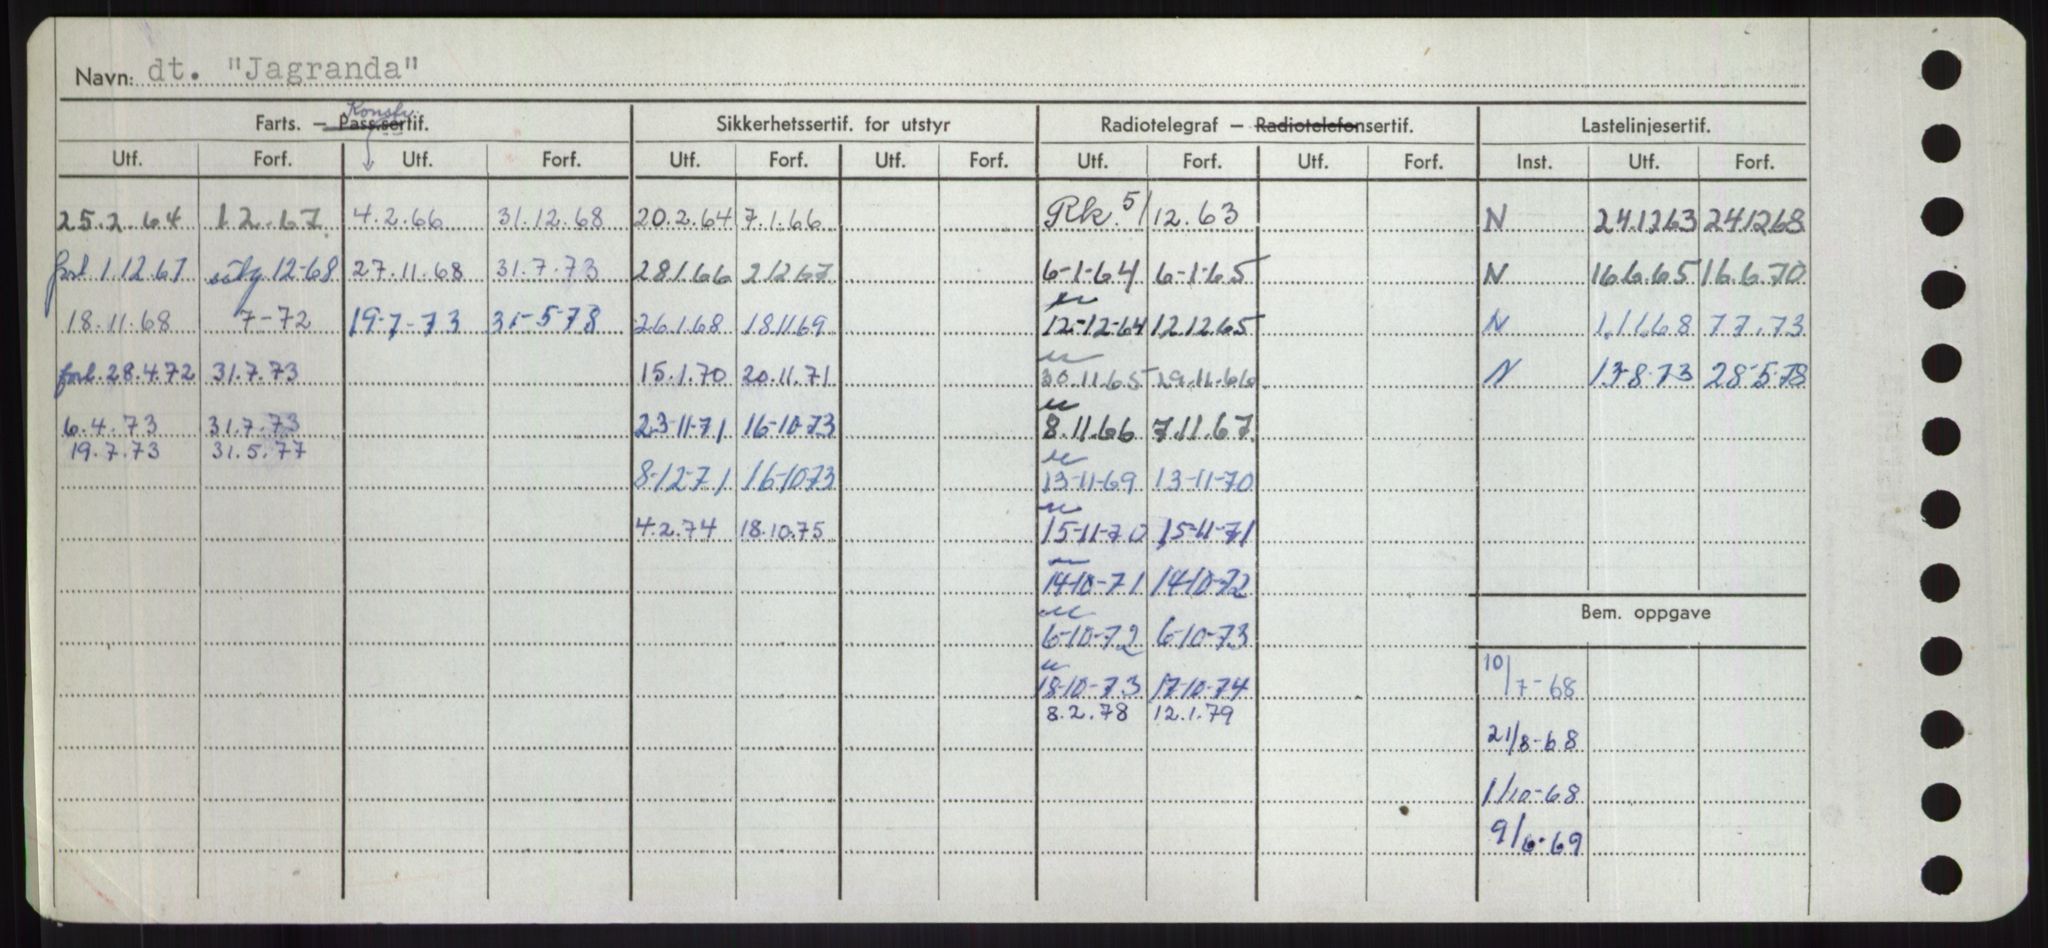 Navn: dt. "Jagranda"
Konstr.
Farts. — Pass.sertif. Sikkerhetssertif. for utstyr Radiotelegraf — Radiotelefonsertif. Lastelinjesertif.
Utf. Forf. Utf. Forf. Utf. Forf. Utf. Forf. Utf. Forf. Utf. Forf. Inst. Utf. Forf.
25.2.64 1.2.67 4.2.66 31.12.68 20.2.64 7.1.66 Rk. 5/12.63 N 24.12.63 24.12.68
forl. 1.12.67 12-68 27.11.68 31.7.73 28.1.66 2.12.67 6-1-64 6-1-65 N 16.6.65 16.6.70
18.11.68 7-72 19-7-73 31-5-78 26.1.68 18.11.69 12-12-64 12.12.65 N 1.11.68 7.7.73
forl. 28.4.72 31.7.73 15.1.70 20.11.71 30.11.65 29.11.66 N 13-8-73 28-5-78
6.4.73 31.7.73 23-11-71 16-10-73 8.11.66 7.11.67
19.7.73 31.5.77
8-12-71 16-10-73 13-11-69 13-11-70
4.2.74 18.10.75 15-11-70 15-11-71
14-10-71 14-10-72
Bem. oppgave
6-10-72 6-10-73
18-10-73 17-10-74 10/7-68
8.2.78 12.1.79
21/8-68
1/10-68
9/6-69